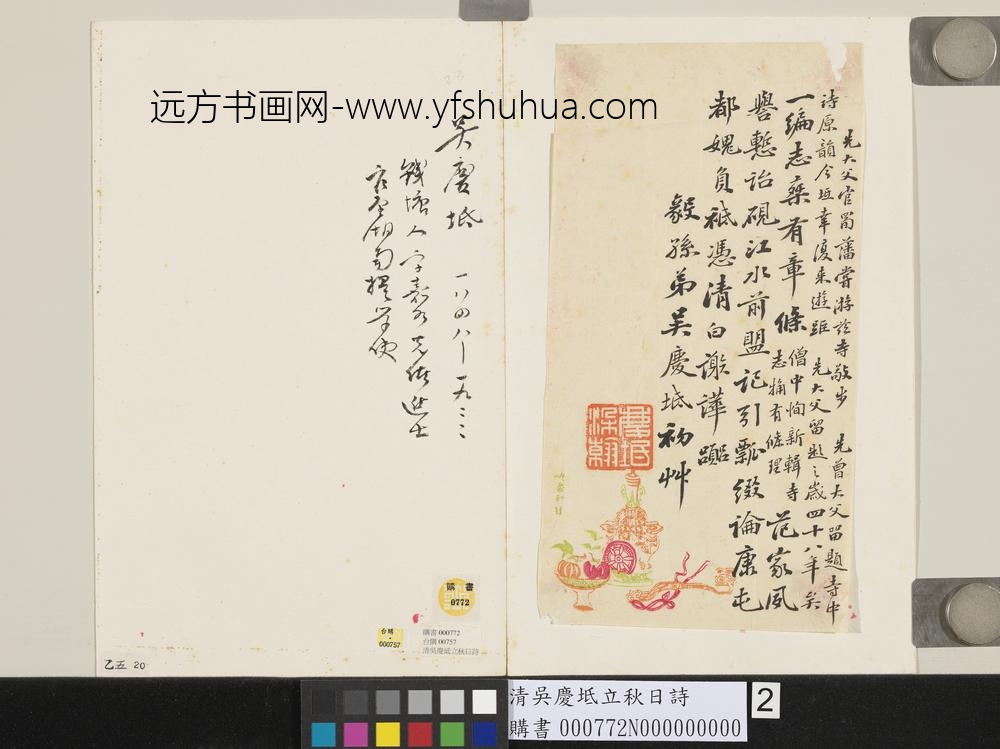 远方书画网-www.yfshuhua.com
先大父官蜀藩嘗游茲寺敬步 先曾大父留題寺中
詩原韻今坻幸復来遊距 先大父留題之歲四十八年矣
一編志乘有章條 僧中恂新輯寺
志稿有條理 范家夙
譽慙詒硯江水前盟記引瓢綴論康屯
都媿負祗憑清白謝譁囂
毅孫弟吴慶坻初艸
慶坻
染翰
吴慶坻 一八四八—一九三三
錢塘人字
購書
0772
台購
000757
購書 000772
台購 00757
清吳慶坻立秋日詩
乙五 20
清吳慶坻立秋日詩
購書 000772N000000000
2